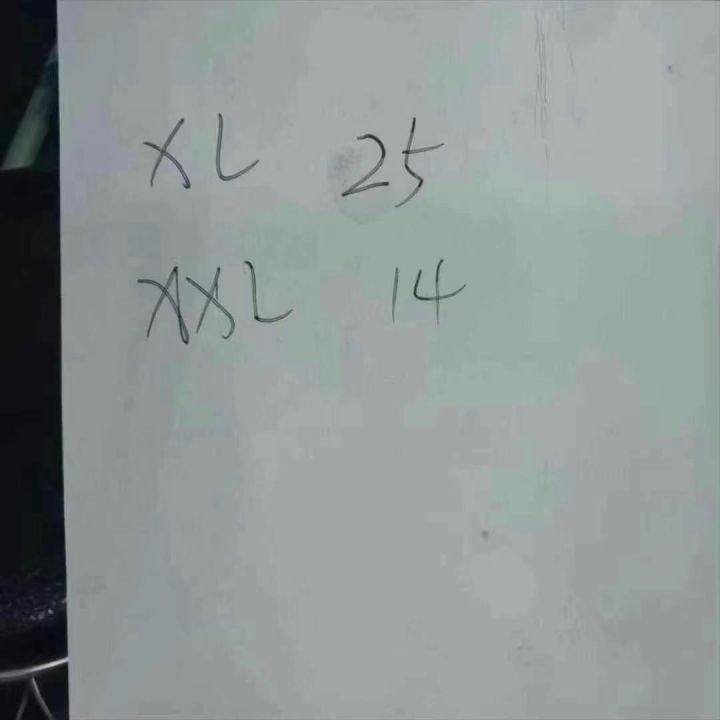 XL 25
XXL 14